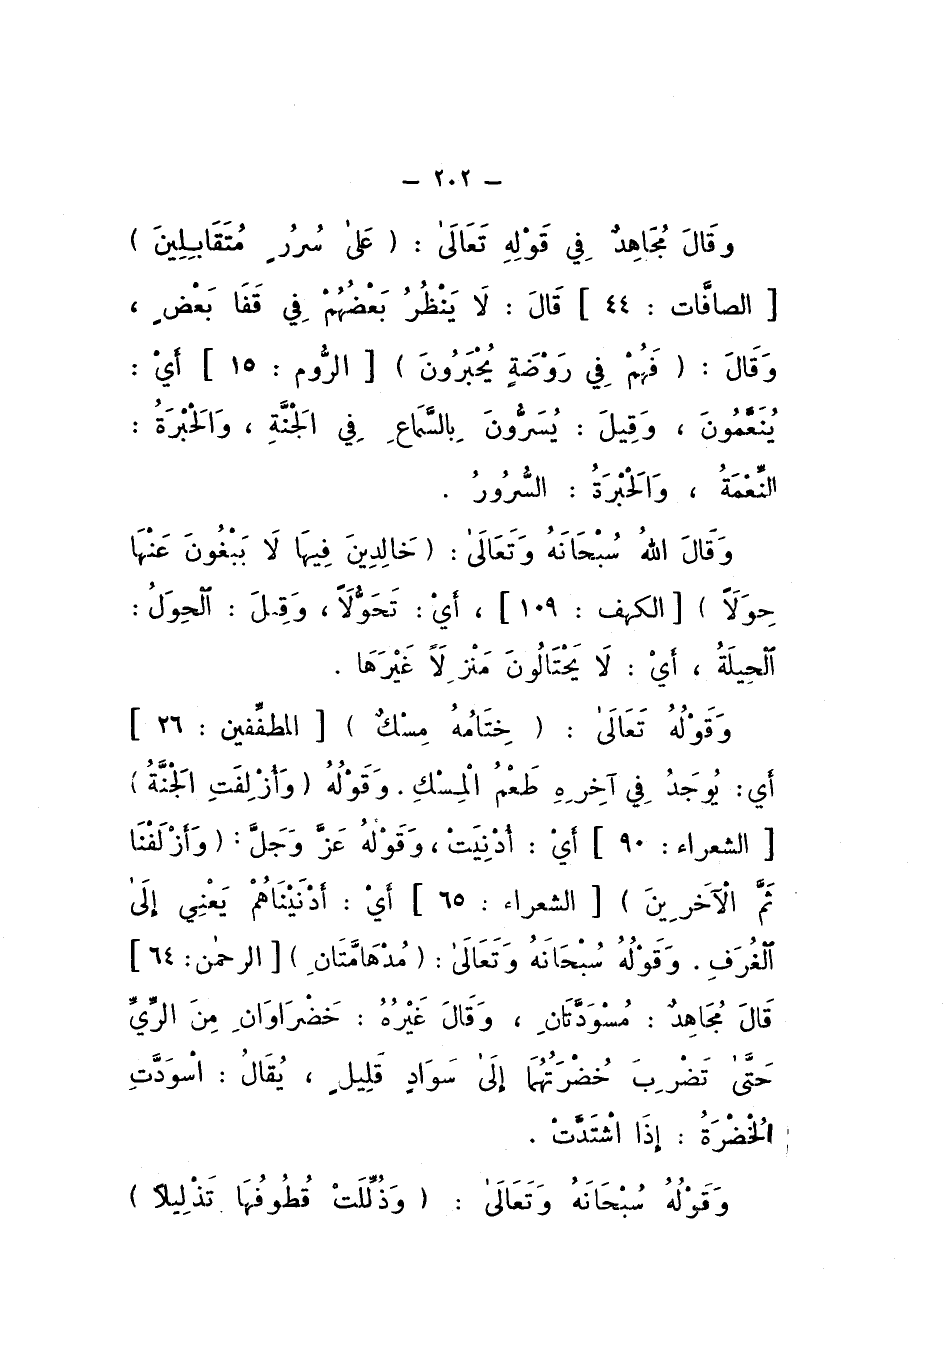 – ٢٠٢ –
وَقَالَ مُجَاهِدٌ فِي قَوْلِهِ تَعَالَىٰ : ( عَلَىٰ سُرُرٍ مُتَقَابِلِينَ )
[ الصافَّات : ٤٤ ] قَالَ : لَا يَنْظُرُ بَعْضُهُمْ فِي قَفَا بَعْضٍ ،
وَقَالَ : ( فَهُمْ فِي رَوْضَةٍ يُحْبَرُونَ ) [ الرُّوم : ١٥ ] أَيْ :
يُنَعَّمُونَ ، وَقِيلَ : يُسَرُّونَ بِالسَّمَاعِ فِي الجَنَّةِ ، وَالحَبْرَةُ :
النِّعْمَةُ ، وَالحَبْرَةُ : السُّرُورُ .
وَقَالَ اللهُ سُبْحَانَهُ وَتَعَالَىٰ : ( خَالِدِينَ فِيهَا لَا يَبْغُونَ عَنْهَا
حِوَلَاً ) [ الكهف : ١٠٩ ] ، أَيْ : تَحَوُّلَاً ، وَقِيلَ : ٱلْحِوَلُ :
ٱلْحِيلَةُ ، أَيْ : لَا يَحْتَالُونَ مَنْزِلَاً غَيْرَهَا .
وَقَوْلُهُ تَعَالَىٰ : ( خِتَامُهُ مِسْكٌ ) [ المطفِّفين : ٢٦ ]
أَي : يُوجَدُ فِي آخِرِهِ طَعْمُ الْمِسْكِ . وَقَوْلُهُ ( وَأُزْلِفَتِ الجَنَّةُ )
[ الشعراء : ٩٠ ] أَيْ : أُدْنِيَتْ ، وَقَوْلُهُ عَزَّ وَجَلَّ : ( وَأَزْلَفْنَا
ثَمَّ الْآخَرِينَ ) [ الشعراء : ٦٥ ] أَيْ : أَدْنَيْنَاهُمْ يَعْنِي إِلَىٰ
ٱلْغُرَفِ . وَقَوْلُهُ سُبْحَانَهُ وَتَعَالَىٰ : ( مُدْهَامَّتَانِ ) [ الرحمٰن : ٦٤ ]
قَالَ مُجَاهِدٌ : مُسْوَدَّتَانِ ، وَقَالَ غَيْرُهُ : خَضْرَاوَانِ مِنَ الرِّيِّ
حَتَّىٰ تَضْرِبَ خُضْرَتُهُمَا إِلَىٰ سَوَادٍ قَلِيلٍ ، يُقَالُ : اسْوَدَّتِ
الْخُضْرَةُ : إِذَا اشْتَدَّتْ .
وَقَوْلُهُ سُبْحَانَهُ وَتَعَالَىٰ : ( وَذُلِّلَتْ قُطُوفُهَا تَذْلِيلاً )